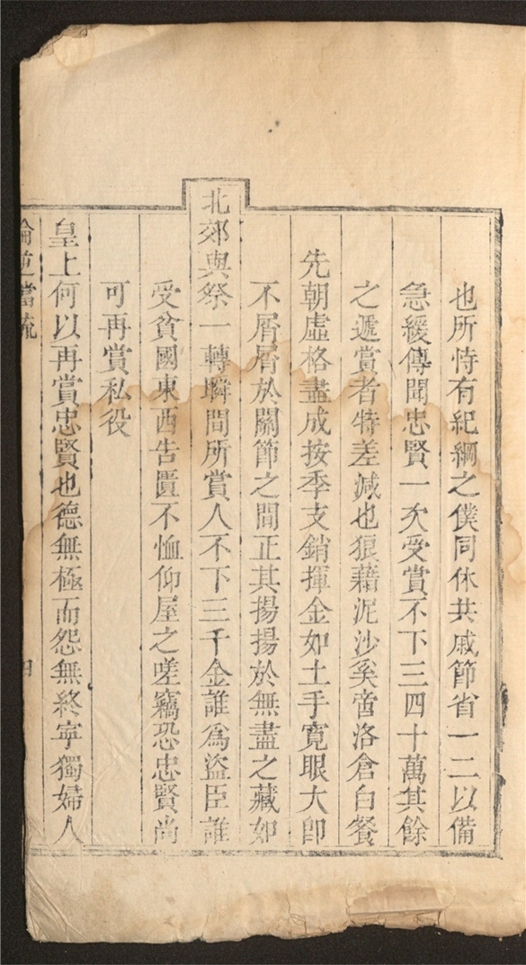 也所恃有紀綱之僕同休共戚節省一二以備
急緩傳聞忠賢一次受賞不下三四十萬其餘
之遞賞者特差減也狼藉泥沙奚啻洛倉白餐
先朝虛格盡成按季支銷揮金如土手寬眼大卽
不屑屑於關節之間正其揚揚於無盡之藏如
北郊與祭一轉瞬間所賞人不下三千金誰爲盜臣誰
受貧國東西告匱不恤仰屋之嗟竊恐忠賢尚
可再賞私役
皇上何以再賞忠賢也德無極而怨無終寧獨婦人
四